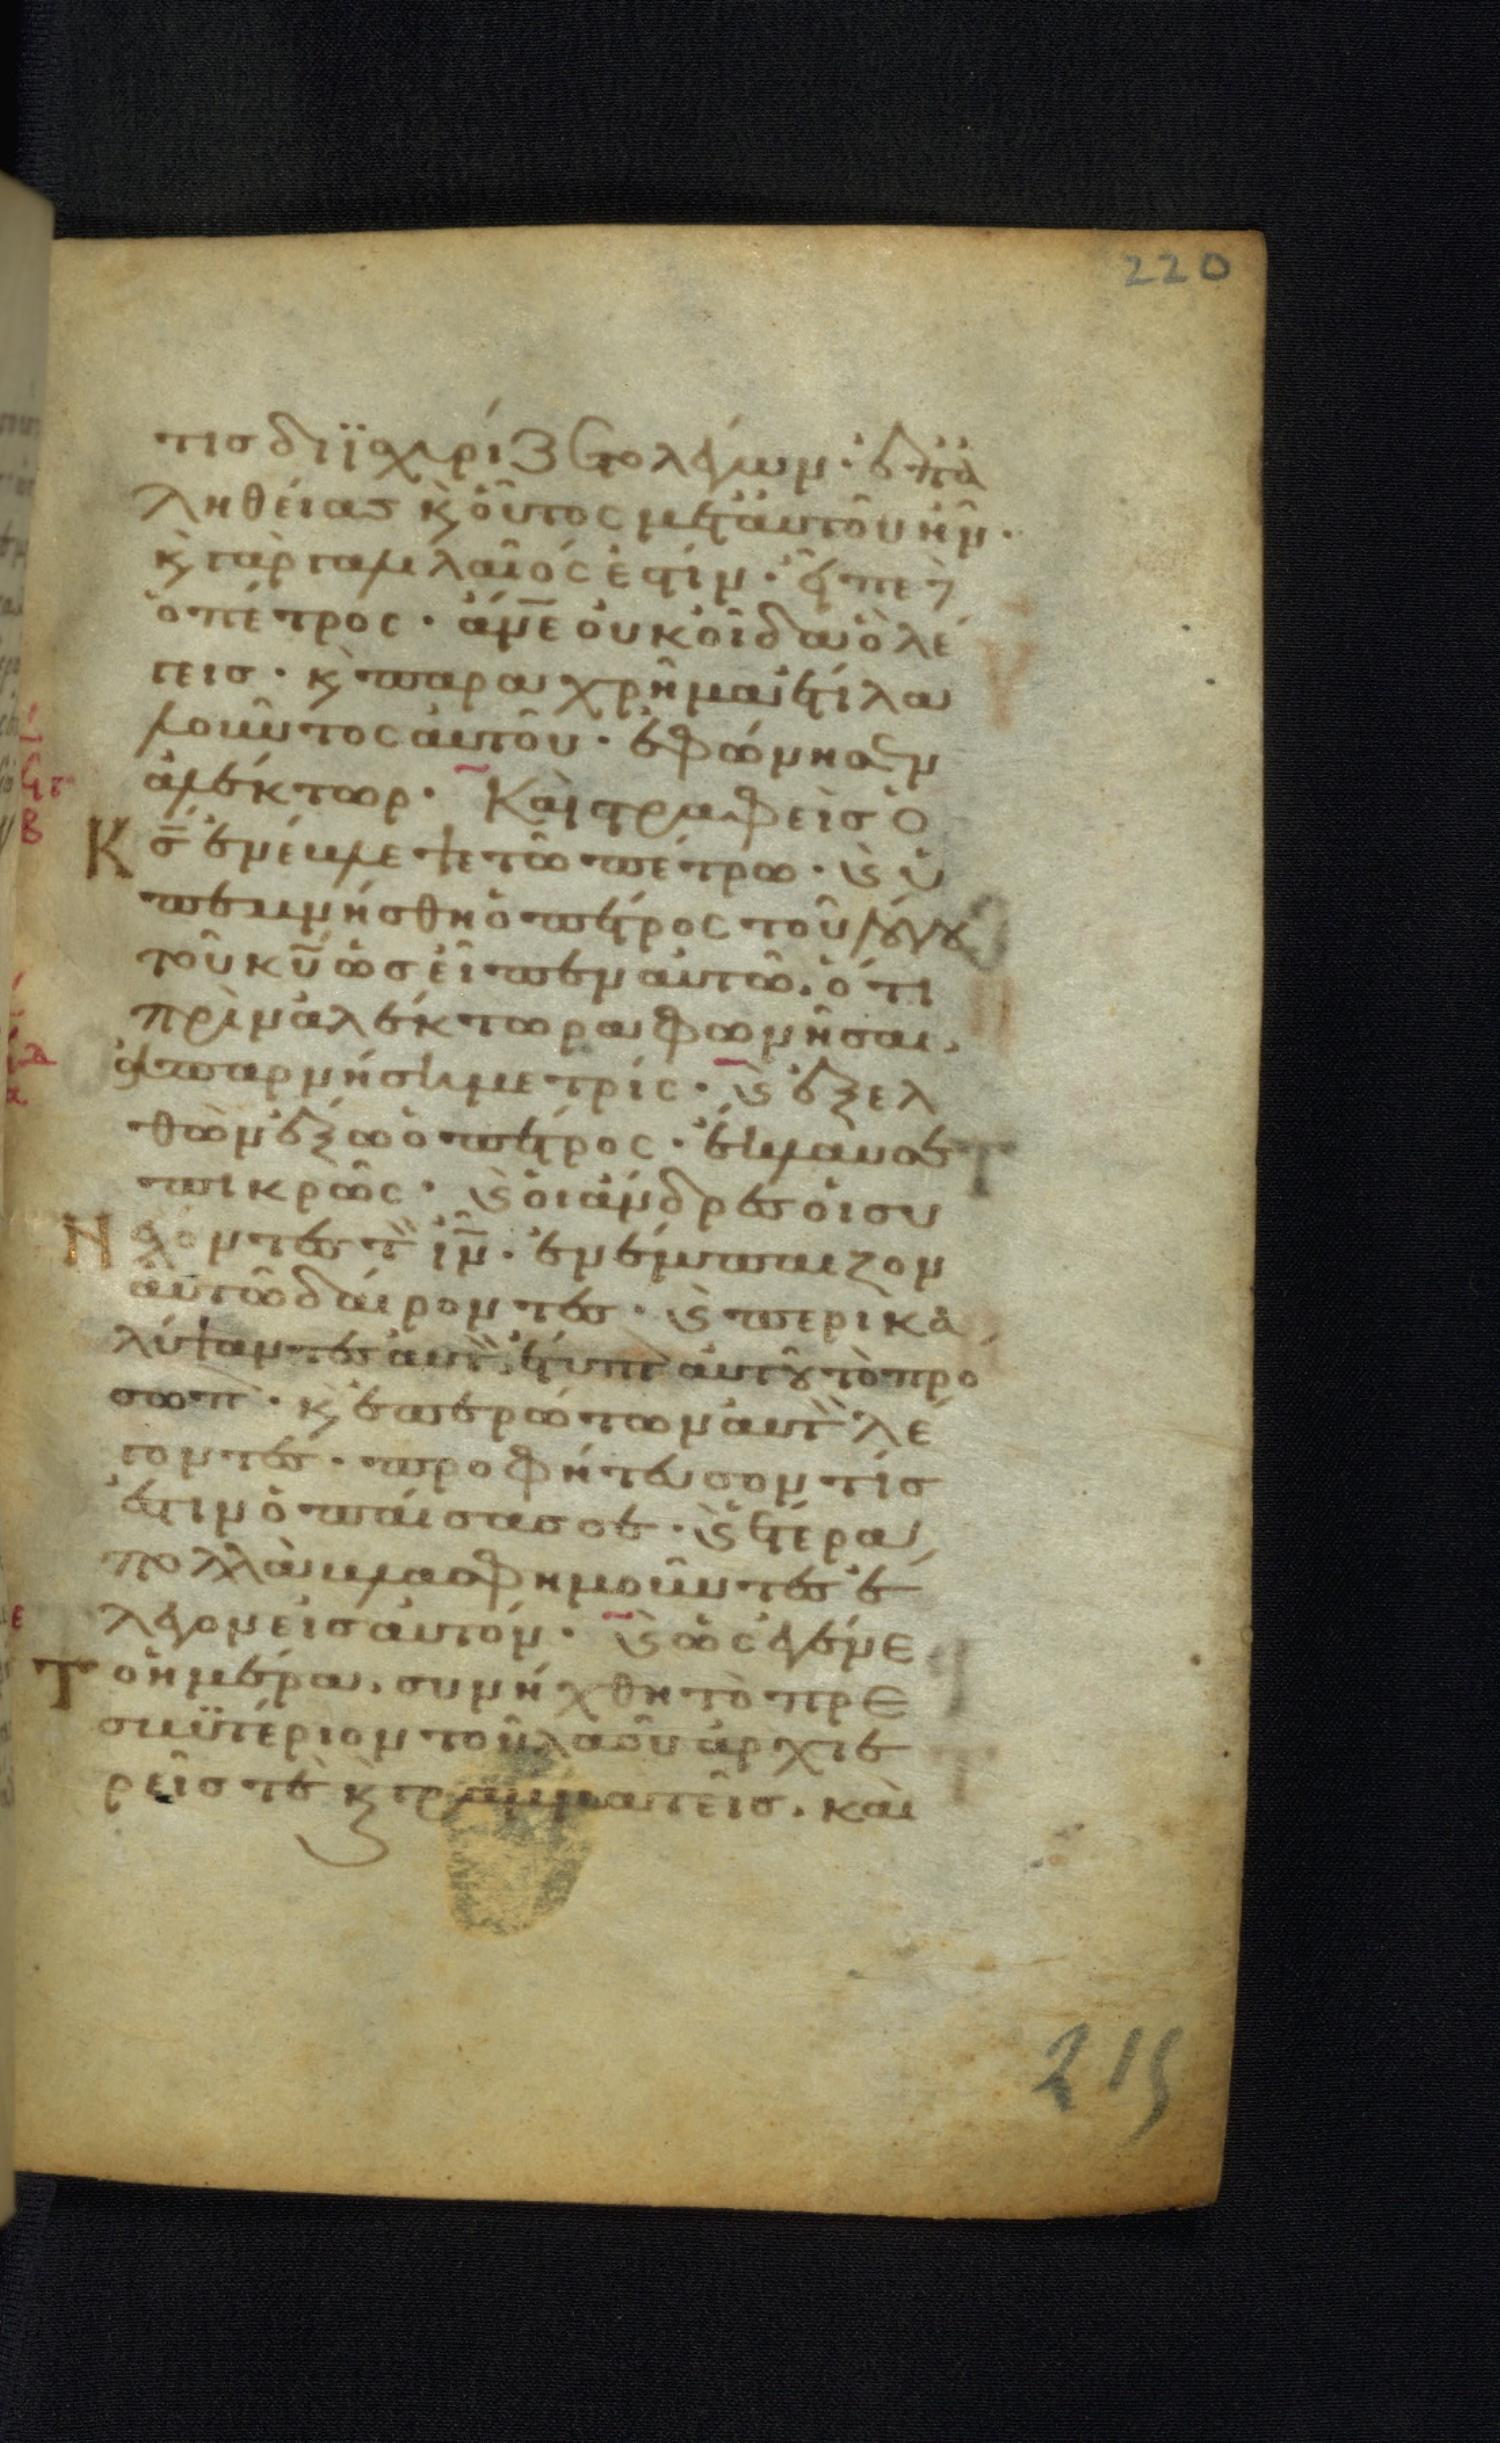 220
τις διϊσχυρίζετο λέγων· ἐπ ἀ
ληθείας κ οὗτος μετ αὐτοῦ ἦν·
κ γὰρ γαλιλαῖός ἐστιν· εἶπε δ
ὁ πέτρος· ἄνε οὐκ οἶδα ὃ λέ
γεις· κ παραχρῆμα ἔτι λα
λοῦντος αὐτοῦ· ἐφώνησεν
ἀλέκτωρ· Καὶ στραφεὶς ὁ
κς ἐνέβλεψε τῶ πέτρω· κ ὑ
πεμνήσθη ὁ πέτρος τοῦ λόγου
τοῦ κυ ὡς εἶπεν αὐτῶ. ὅτι
πρὶν ἀλέκτορα φωνῆσαι.
ἀπαρνήση με τρίς· κ ἐξελ
θὼν ἔξω ὁ πέτρος· ἔκλαυσε
πικρῶς· κ οἱ ἄνδρες οἱ συ
νέχοντες τ ιν· ἐνέπαιζον
αὐτῶ δαίροντες· κ περικα
λύψαντες αὐτ. ἔτυπτ αὐτοῦ τὸ προ
σωπ· κ ἐπερώτων αὐτ λέ
γοντες· προφήτευσον τίς
ἐστιν ὁ παίσας σε· κ ἕτερα
πολλὰ βλασφημοῦντες ἔ
λεγον εἰς αὐτόν· κ ὡς ἐγένε
το ἡμέρα. συνήχθη τὸ πρε
σβϋτέριον τοῦ λαοῦ ἀρχιε
ρεῖς τὲ κ γραμματεῖς. καὶ
219